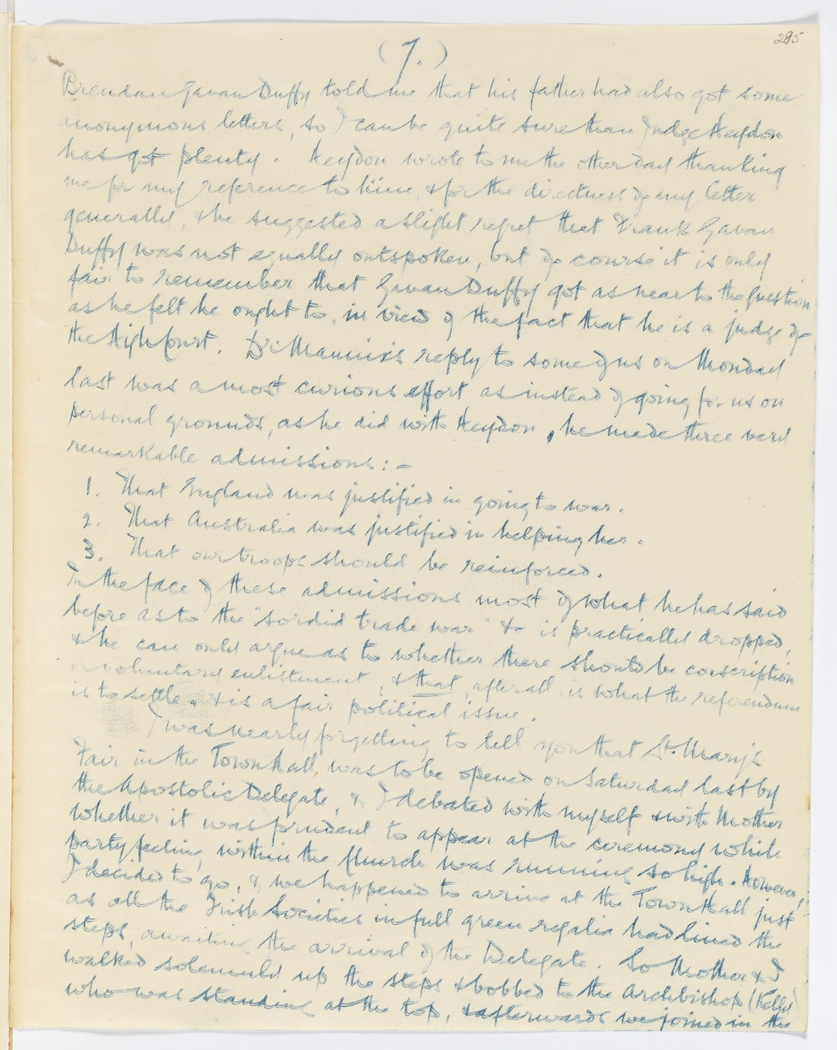 285
(7.)
Brendan Gavan Duffy told me that his father had also got some
anonymous letters, so I can be quite sure than Judge Heydon
has got plenty. Heydon wrote to me the other day thanking
me for my reference to him, & for the directness of my letter
generally, & he suggested a slight regret that Frank Gavan
Duffy was not equally outspoken, but of course it is only
fair to remember that Gavan Duffy got as near to the question
as he felt he ought to, in view of the fact that he is a judge of
the High Court. Dr. Mannix's reply to some of us on Monday
last was a most curious effort as instead of going for us on
personal grounds, as he did with Heydon, he made three very
remarkable admissions:-
1. That England was justified in going to war.
2. That Australia was justified in helping her.
3. That our troops should be reinforced.
In the face of these admissions most of what he has said
before as to the "sordid trade war" &c is practically dropped,
& he can only argue as to whether there should be conscription
or voluntary enlistment, & that, after all, is what the referendum
is to settle, & is a fair political issue.
I was nearly forgetting to tell you that St. Mary's
Fair in the Town Hall, was to be opened on Saturday last by
the Apostolic Delegate, & I debated with myself & with Mother
whether it was prudent to appear at the ceremony while
party feeling within the Church was running so high. However,
I decided to go, & we happened to arrive at the Town Hall just
as all the Irish Societies in full green regalia had lined the
steps, awaiting the arrival of the Delegate. So Mother & I
walked solemnly up the steps & bobbed to the Archbishop (Kelly)
who was standing at the top, & afterwards we joined in the